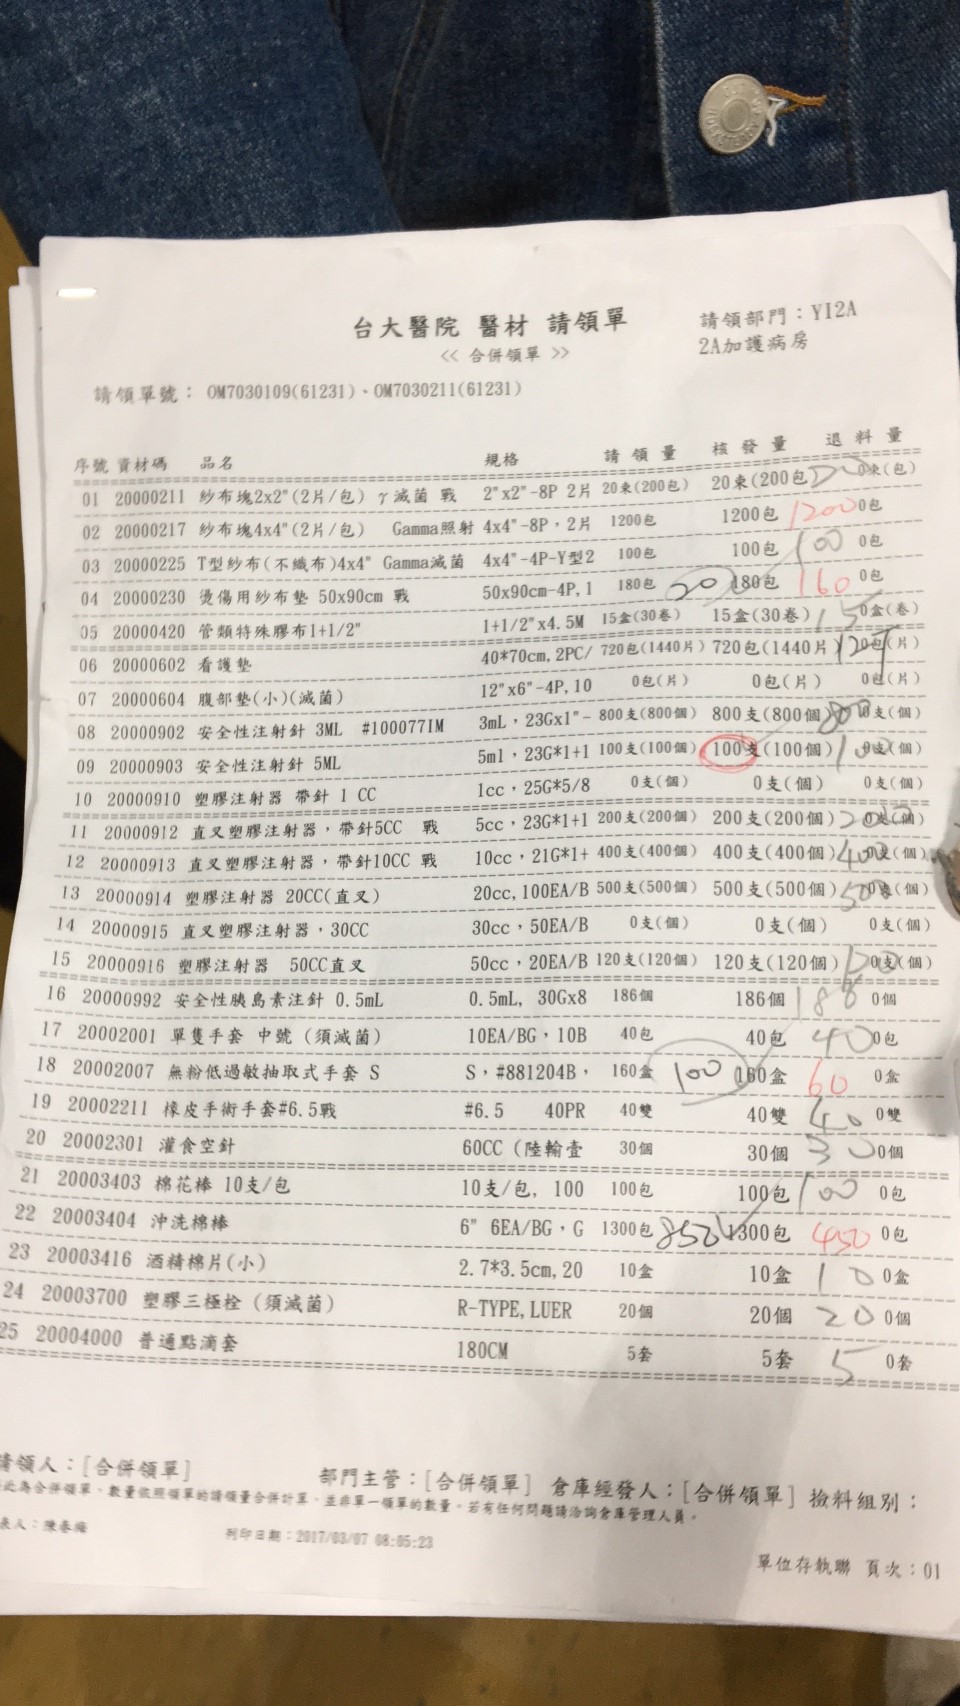 台大醫院 醫材 請領單
<< 合併領單 >>
請領部門：YI2A
2A加護病房
請領單號： OM7030109(61231)、OM7030211(61231)
序號 資材碼 品名 規格 請 領 量 核 發 量 退 料 量
01 20000211 紗布塊2x2"(2片/包) γ滅菌 戰 2"x2"-8P 2片 20束(200包) 20束(200包
02 20000217 紗布塊4x4"(2片/包) Gamma照射 4x4"-8P，2片 1200包 1200包 1200 0包
03 20000225 T型紗布(不織布)4x4" Gamma滅菌 4x4"-4P-Y型2 100包 100包 100 0包
04 20000230 燙傷用紗布墊 50x90cm 戰 50x90cm-4P,1 180包 20 180包 160 0包
05 20000420 管類特殊膠布1+1/2" 1+1/2"x4.5M 15盒(30卷) 15盒(30卷) 15 0盒(卷)
06 20000602 看護墊 40*70cm,2PC/ 720包(1440片) 720包(1440片) 0包(片)
07 20000604 腹部墊(小)(滅菌) 12"x6"-4P,10 0包(片) 0包(片) 0包(片)
08 20000902 安全性注射針 3ML #100077IM 3mL，23Gx1"- 800支(800個) 800支(800個) 800 0支(個)
09 20000903 安全性注射針 5ML 5ml，23G*1+1 100支(100個) 100支(100個) 100 0支(個)
10 20000910 塑膠注射器 帶針 1 CC 1cc，25G*5/8 0支(個) 0支(個) 0支(個)
11 20000912 直叉塑膠注射器，帶針5CC 戰 5cc，23G*1+1 200支(200個) 200支(200個) 200 0支(個)
12 20000913 直叉塑膠注射器，帶針10CC 戰 10cc，21G*1+ 400支(400個) 400支(400個) 400 0支(個)
13 20000914 塑膠注射器 20CC(直叉) 20cc,100EA/B 500支(500個) 500支(500個) 500 0支(個)
14 20000915 直叉塑膠注射器，30CC 30cc，50EA/B 0支(個) 0支(個) 0支(個)
15 20000916 塑膠注射器 50CC直叉 50cc，20EA/B 120支(120個) 120支(120個) 0支(個)
16 20000992 安全性胰島素注針 0.5mL 0.5mL, 30Gx8 186個 186個 0個
17 20002001 單隻手套 中號 (須滅菌) 10EA/BG，10B 40包 40包 40 0包
18 20002007 無粉低過敏抽取式手套 S S，#881204B， 160盒 100 160盒 60 0盒
19 20002211 橡皮手術手套#6.5戰 #6.5 40PR 40雙 40雙 40 0雙
20 20002301 灌食空針 60CC (陸輸壹 30個 30個 30 0個
21 20003403 棉花棒 10支/包 10支/包, 100 100包 100包 100 0包
22 20003404 沖洗棉棒 6" 6EA/BG，G 1300包 850 1300包 450 0包
23 20003416 酒精棉片(小) 2.7*3.5cm,20 10盒 10盒 10 0盒
24 20003700 塑膠三極栓 (須滅菌) R-TYPE,LUER 20個 20個 20 0個
25 20004000 普通點滴套 180CM 5套 5套 5 0套
請領人：[合併領單] 部門主管：[合併領單] 倉庫經發人：[合併領單] 撿料組別：
此為合併領單，數量依照領單的請領量合併計算，並非單一領單的數量。若有任何問題請洽詢倉庫管理人員。
表人：陳春梅 列印日期：2017/03/07 08:05:23
單位存執聯 頁次：01